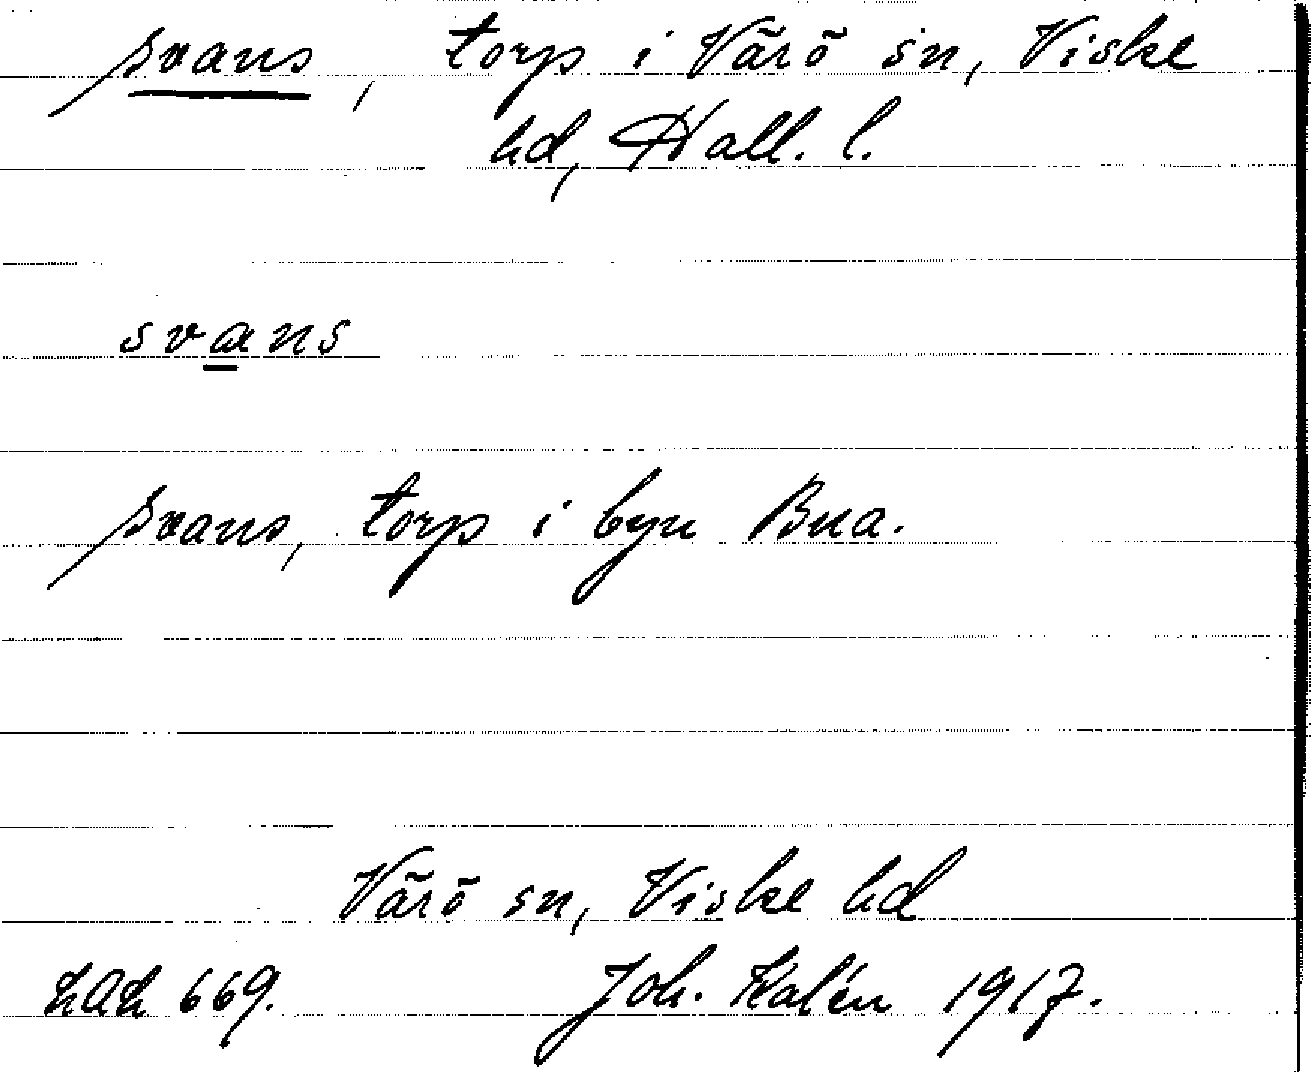 Svans, torp i Värö sn, Viske
hd, Hall. l.
svans
Svans, torp i byn Bua.
Värö sn, Viske hd
LAL 669. Joh. Kalén 1917.